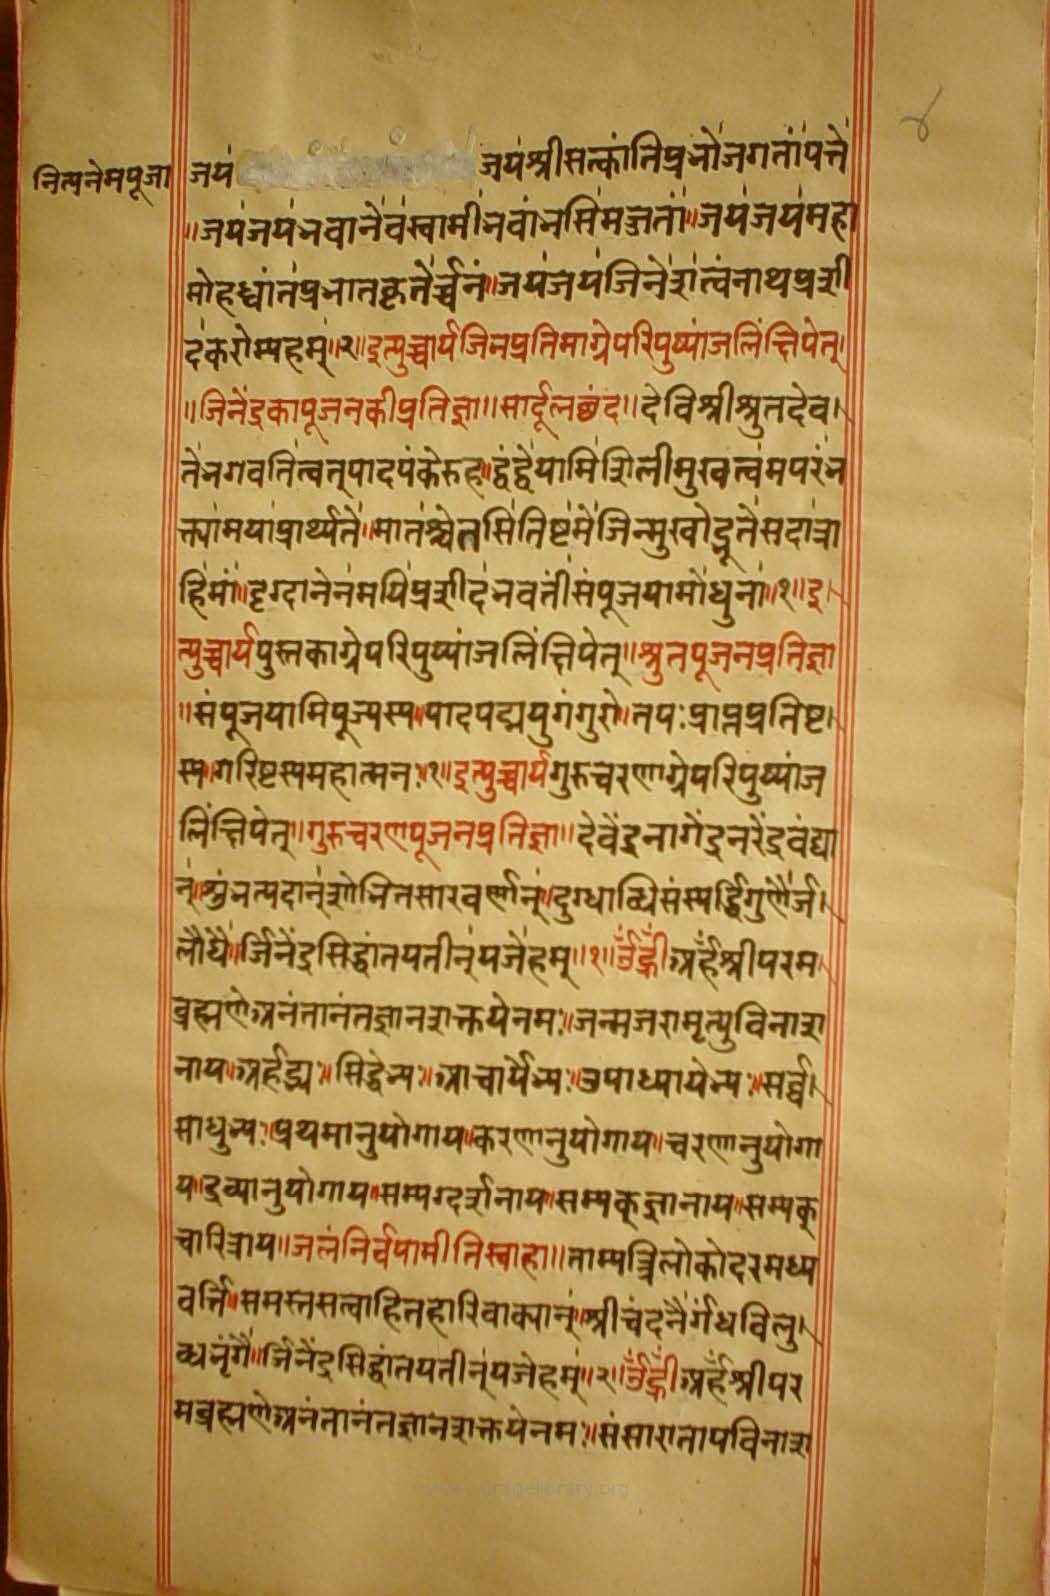 ४
नित्यनेमपूजा
जय जय श्रीसत्कांतिप्रभो जगतांपते
॥जय जय भवानेव स्वामी भवांभसि मज्जतां॥जय जय महा
मोहध्वांतप्रभातकृतेर्च्चनं॥जय जय जिनेश त्वं नाथ प्रसी
द करोम्यहम्॥२॥इत्युच्चार्य जिनप्रतिमाग्रे परिपुष्पांजलिं क्षिपेत्।
॥जिनेंद्र का पूजन की प्रतिज्ञा॥सार्दूलछंद॥देवि श्रीश्रुतदेव।
ते भगवति त्वत्पादपंकेरुह॥द्वंद्वे यामि शिलीमुखत्वमपरं भ
क्त्या मया प्रार्थ्यते॥मातश्चेतसि तिष्ट मे जिन्मुखोद्भूते सदा त्रा
हि मां॥दृग्दानेन मयि प्रसीद भवतीं संपूजयामोधुना॥१॥इ।
त्युच्चार्य पुस्तकाग्रे परिपुष्पांजलिं क्षिपेत्॥श्रुतपूजनप्रतिज्ञा
॥संपूजयामि पूज्यस्य॥पादपद्मयुगं गुरो॥तपःप्राप्तप्रतिष्ट।
स्य॥गरिष्टस्य महात्मनः॥१॥इत्युच्चार्य गुरुचरणाग्रे परिपुष्पांज
लिं क्षिपेत्॥गुरुचरणपूजनप्रतिज्ञा॥देवेंद्रनागेंद्रनरेंद्रवंद्या
न्॥शुंभत्पदान् शोभितसारवर्णान्॥दुग्धाब्धिसंस्पर्द्धिगुणैर्ज।
लौघै॥र्जिनेंद्रसिद्धांतयतीन् यजेहम्॥१॥ॐ ह्रीं अर्हं श्रीपरम
ब्रह्मणे अनंतानंतज्ञानशक्तये नमः॥जन्मजरामृत्युविनाश
नाय॥अर्हद्भ्यः॥सिद्धेभ्यः॥आचार्येभ्यः॥उपाध्यायेभ्यः॥सर्व्व।
साधुभ्यः॥प्रथमानुयोगाय॥करणानुयोगाय॥चरणानुयोगा
य॥द्रव्यानुयोगाय॥सम्यग्दर्शनाय॥सम्यक्ज्ञानाय॥सम्यक्
चारित्राय॥जलं निर्वपामीति स्वाहा॥ताम्यत्त्रिलोकोदरमध्य
वर्त्ति॥समस्तसत्वाहितहारिवाक्यान्॥श्रीचंदनैर्गंधविलु।
ब्धभृंगै॥र्जिनेंद्रसिद्धांतयतीन् यजेहम्॥२॥ॐ ह्रीं अर्हं श्रीपर
मब्रह्मणे अनंतानंतज्ञानशक्तये नमः॥संसारातापविनाश